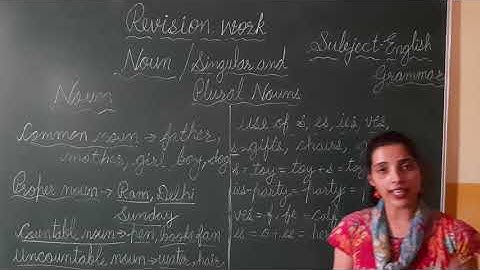 Revision work
Noun / Singular and
Plural Nouns
Subject-English
Grammar
Noun
Common noun → father,
mother, girl, boy, dog
Proper noun → Ram, Delhi
Sunday
Countable noun → pen, book, fan
Uncountable noun → water, hair
use of s, es, ies, ves,
s = gifts, chairs,
s = toy = toy + s =
ies-party = party =
ves = f - fe =